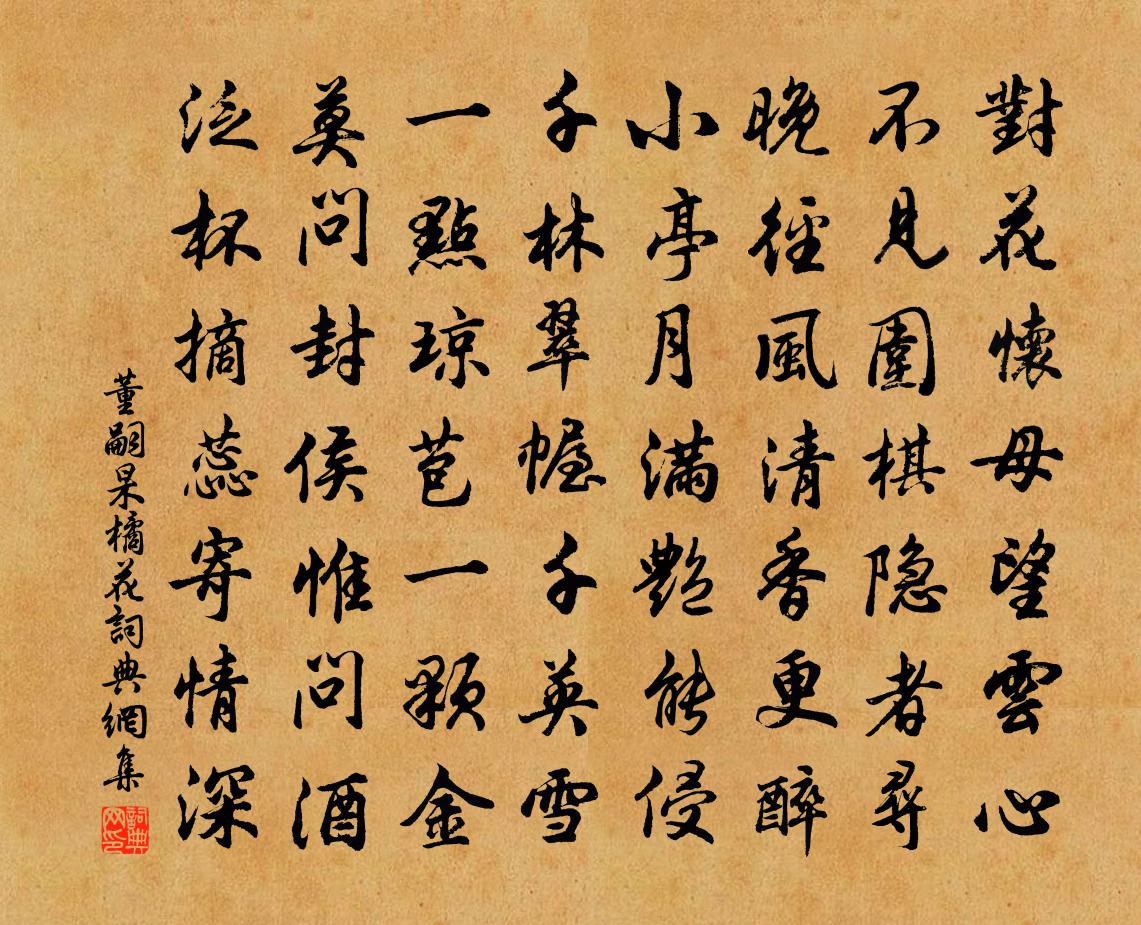 對花懷母望雲心
不見圍棋隐者尋
晚徑風清香更醉
小亭月滿艷能侵
千林翠幄千英雪
一點琼苞一顆金
莫問封侯惟問酒
泛杯摘蕊寄情深
董嗣杲橘花詞典網集
詞典网印